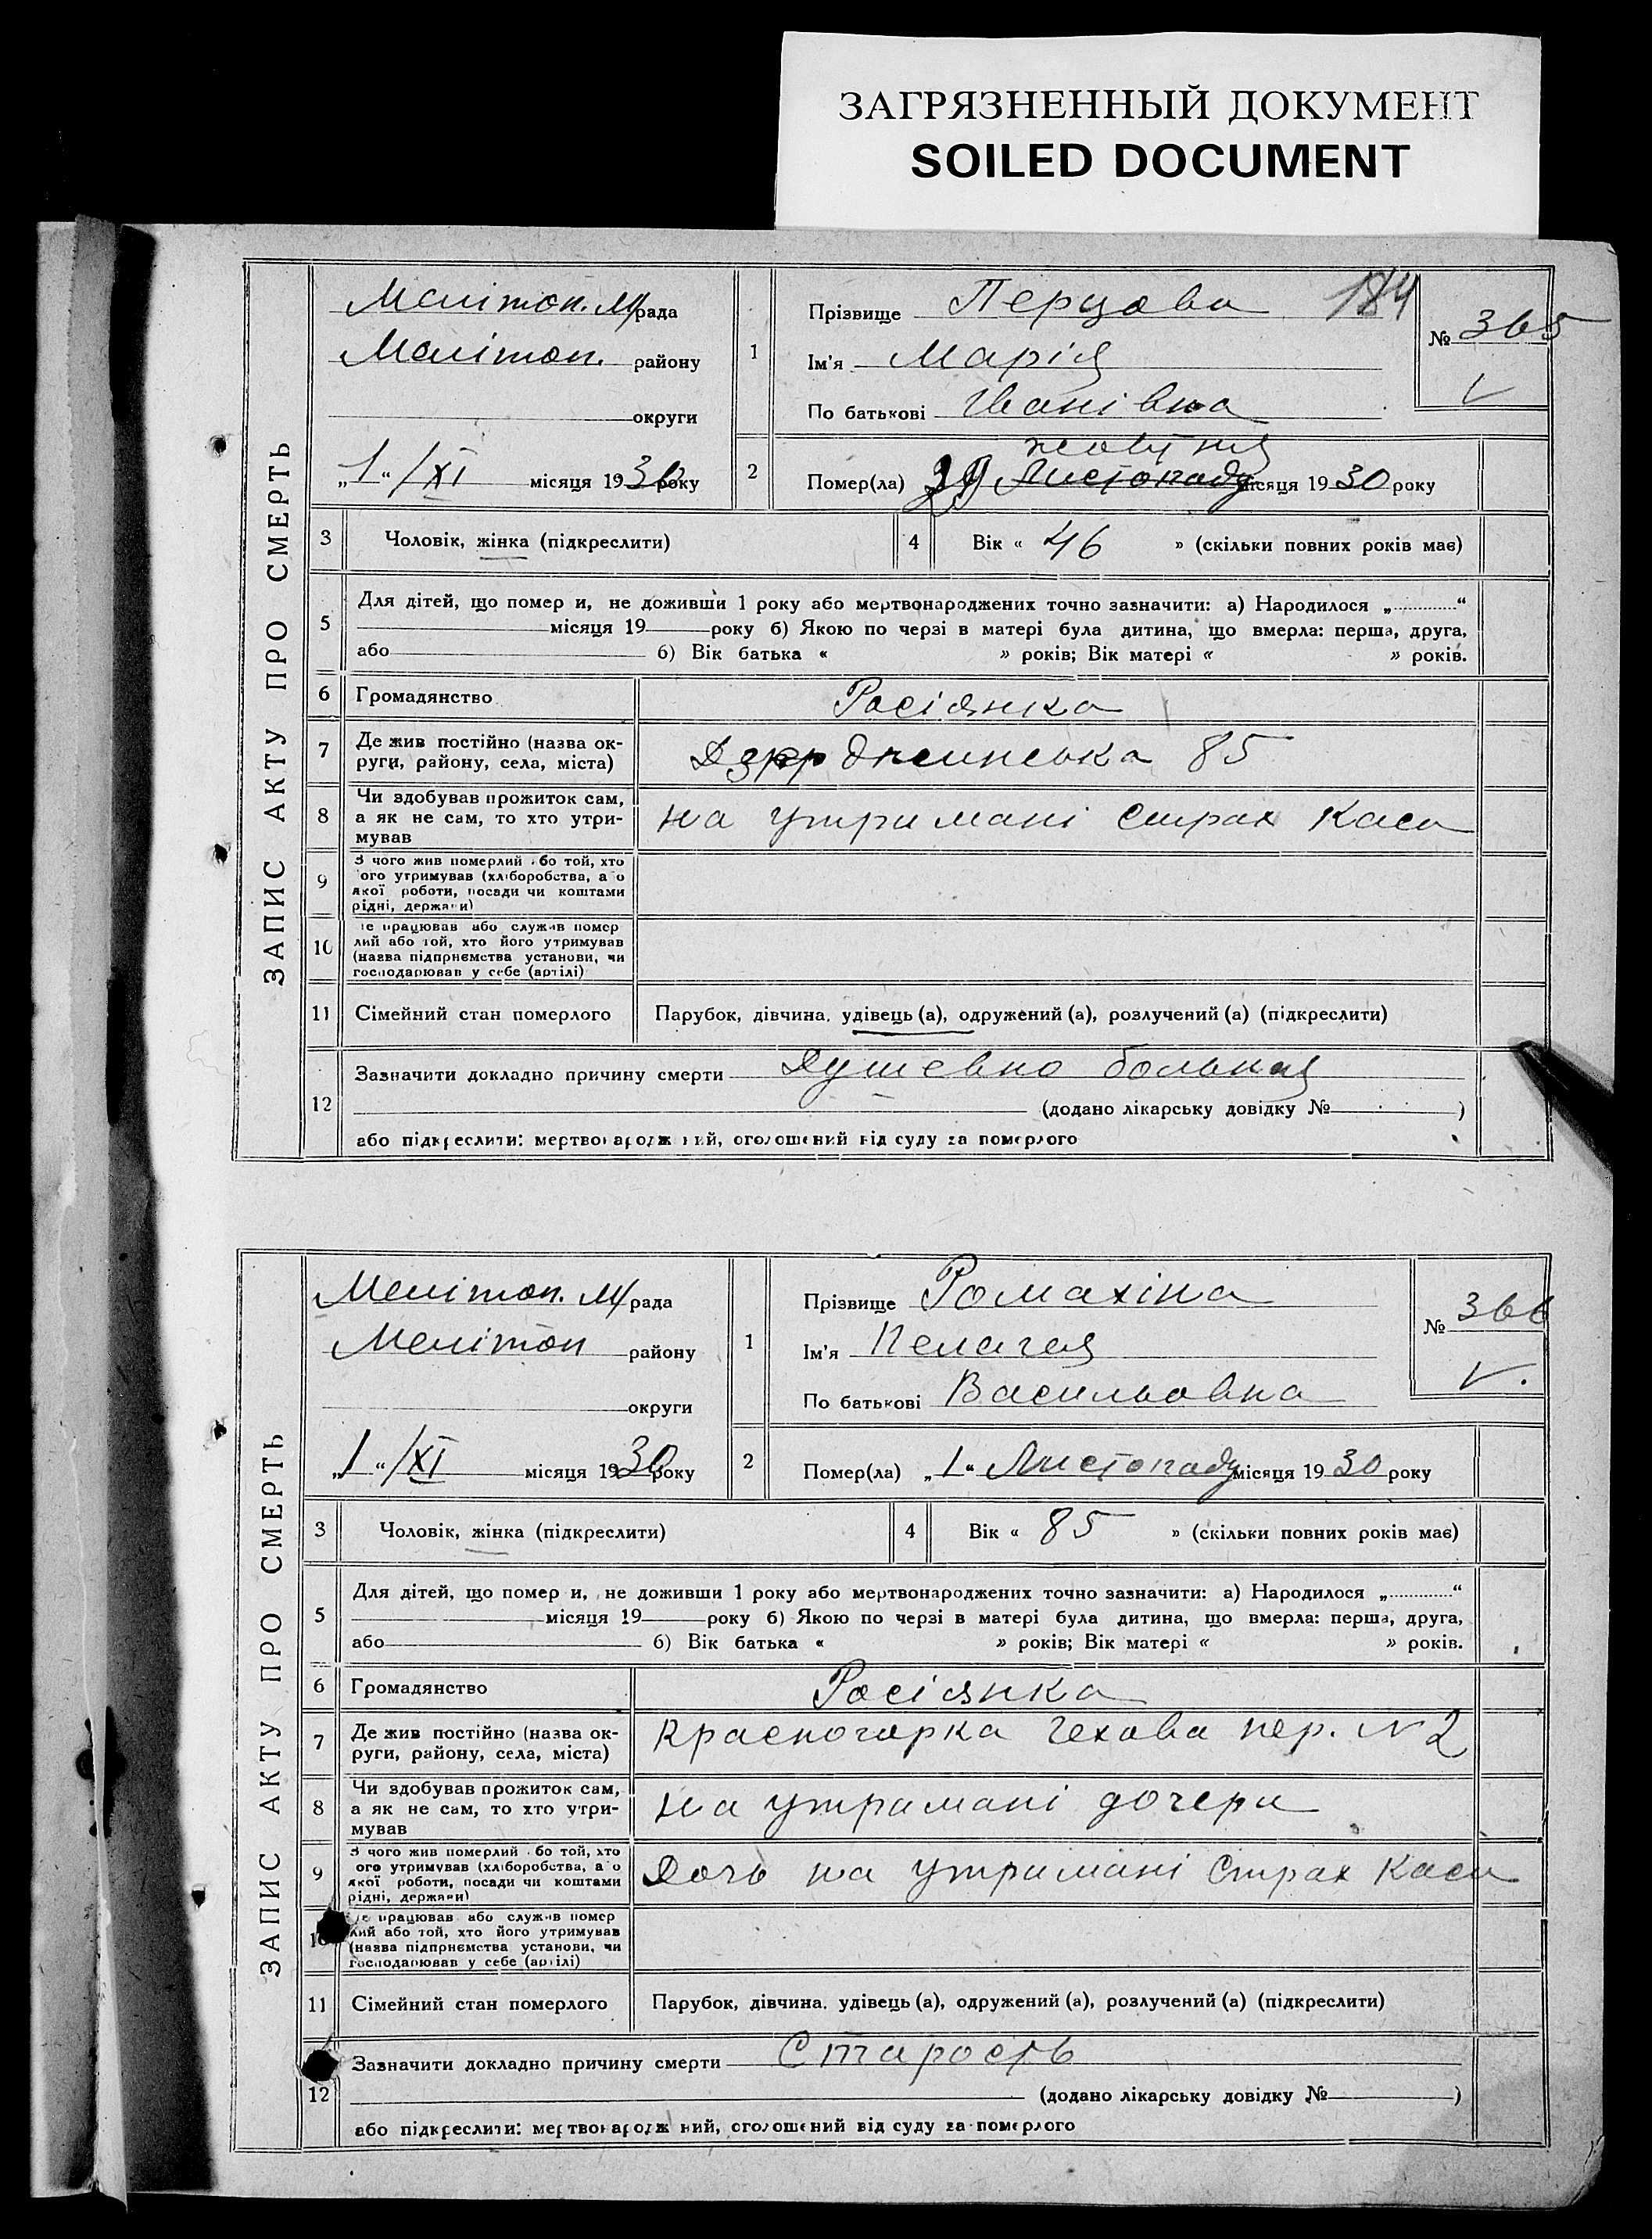 ЗАГРЯЗНЕННЫЙ ДОКУМЕНТ
SOILED DOCUMENT
ЗАПИС АКТУ ПРО СМЕРТЬ
Мелітоп. М/рада
Мелітоп. району
округи
„1“ /XI місяця 1930 року
1
Прізвище Перцова 184
Ім'я Марія
По батькові Іванівна
№ 365
V
2
жовтня
Помер(ла) 29 Листопаду місяця 1930 року
3 Чоловік, жінка (підкреслити)
4 Вік « 46 » (скільки повних років має)
5
Для дітей, що помер и, не доживши 1 року або мертвонароджених точно зазначити: а) Народилося „ “
місяця 19 року б) Якою по черзі в матері була дитина, що вмерла: перша, друга,
або б) Вік батька « » років; Вік матері « » років.
6 Громадянство Росіянка
7 Де жив постійно (назва ок-
руги, району, села, міста)
Дзержинська 85
8 Чи здобував прожиток сам,
а як не сам, то хто утри-
мував
на утримані страх Каси
9 З чого жив померлий бо той, хто
ого утримував (хліборобства, а о
якої роботи, посади чи коштами
рідні, держави)
10 е працював або служив помер
лий або той, хто його утримував
(назва підприємства установи, чи
господарював у себе (артілі)
11 Сімейний стан померлого Парубок, дівчина, удівець (а), одружений (а), розлучений (а) (підкреслити)
12
Зазначити докладно причину смерти Душевно больная
(додано лікарську довідку № )
або підкреслити: мертвонародж ний, оголошений від суду за померлого
ЗАПИС АКТУ ПРО СМЕРТЬ
Мелітоп. М/рада
Мелітоп району
округи
„1“ /XI місяця 1930 року
1
Прізвище Ромахіна
Ім'я Пелагея
По батькові Васильовна
№ 366
V.
2 Помер(ла) „1“ Листопаду місяця 1930 року
3 Чоловік, жінка (підкреслити)
4 Вік « 85 » (скільки повних років має)
5
Для дітей, що помер и, не доживши 1 року або мертвонароджених точно зазначити: а) Народилося „ “
місяця 19 року б) Якою по черзі в матері була дитина, що вмерла: перша, друга,
або б) Вік батька « » років; Вік матері « » років.
6 Громадянство Росіянка
7 Де жив постійно (назва ок-
руги, району, села, міста)
Красногорка Чехова пер. № 2
8 Чи здобував прожиток сам,
а як не сам, то хто утри-
мував
на утримані дочери
9 З чого жив померлий бо той, хто
ого утримував (хліборобства, а о
якої роботи, посади чи коштами
рідні, держави)
Дочь на утримані Страх Каси
10 е працював або служив помер
лий або той, хто його утримував
(назва підприємства установи, чи
господарював у себе (артілі)
11 Сімейний стан померлого Парубок, дівчина, удівець (а), одружений (а), розлучений (а) (підкреслити)
12
Зазначити докладно причину смерти Старость
(додано лікарську довідку № )
або підкреслити: мертвонародж ний, оголошений від суду за померлого